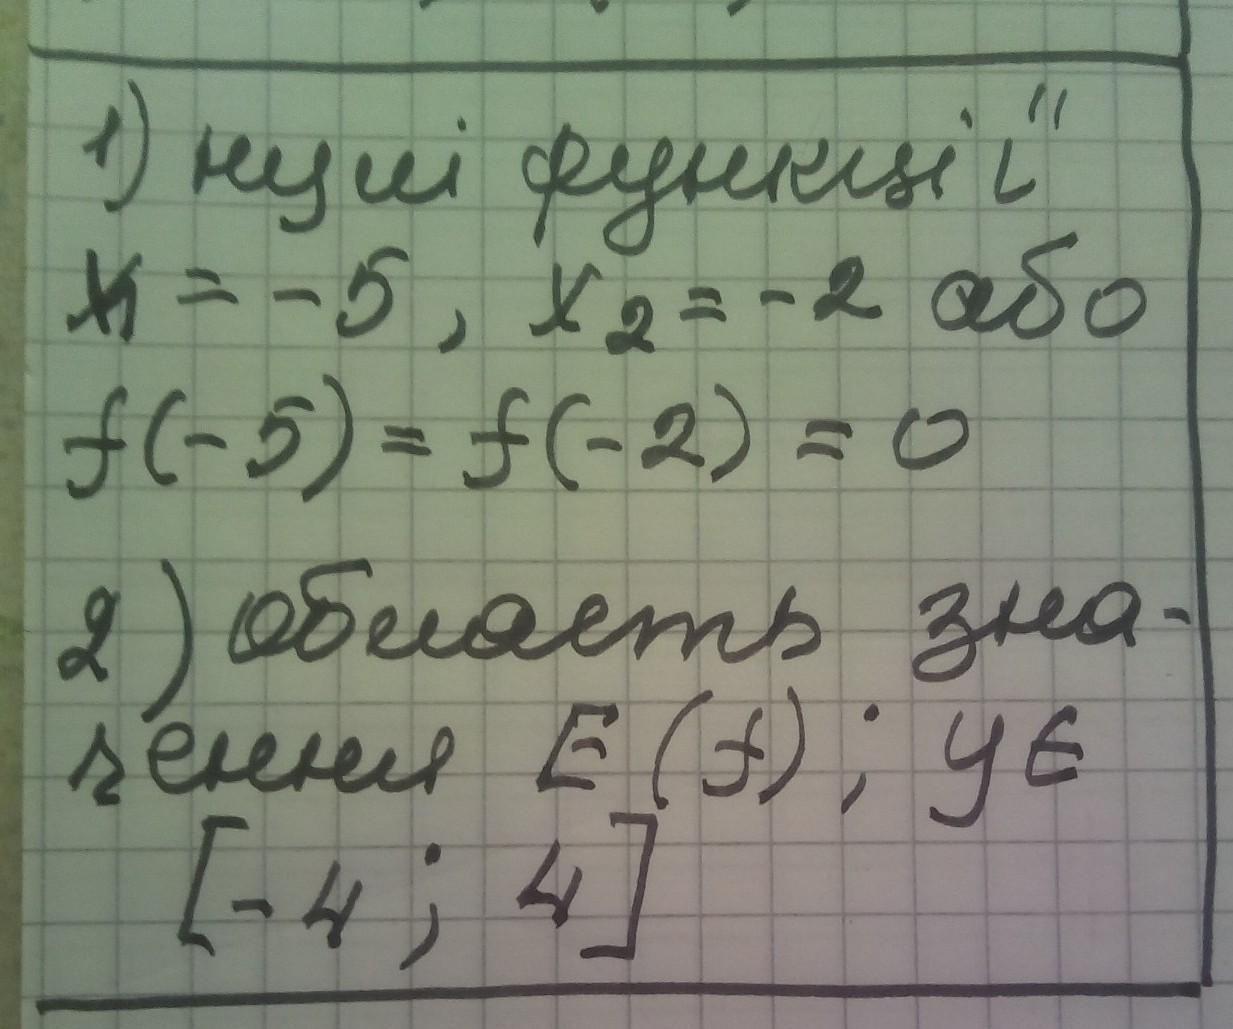 1) нулі функції
x1 = -5, x2 = -2 або
f(-5) = f(-2) = 0
2) область зна-
чення E(f); y ∈
[-4; 4]